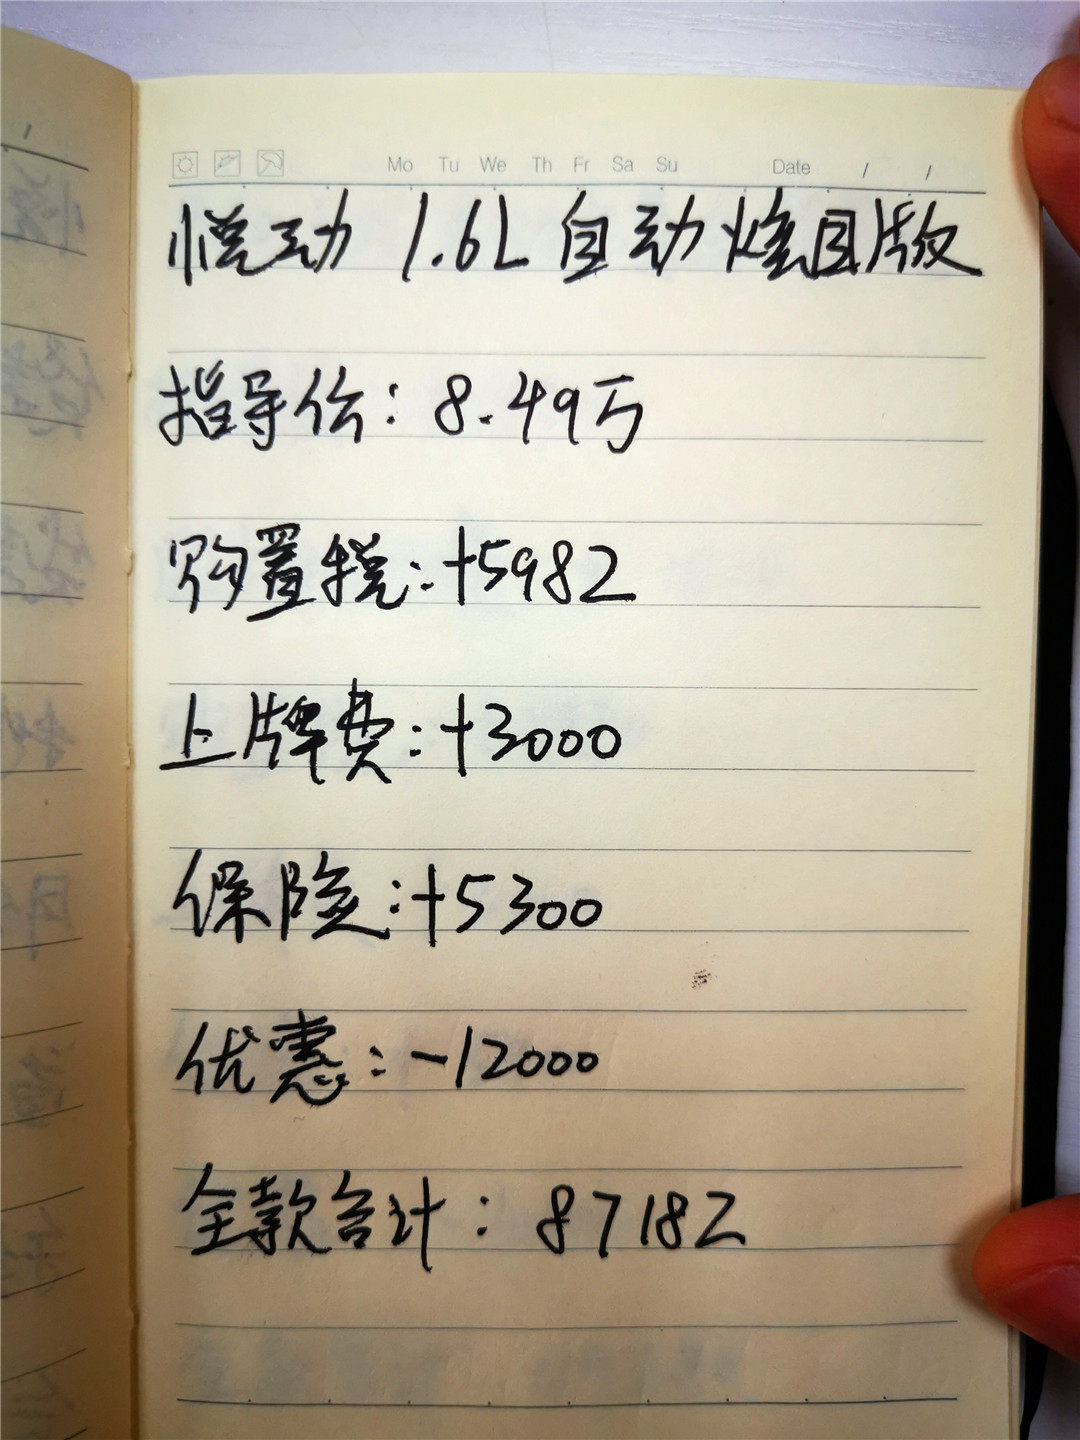 Mo Tu We Th Fr Sa Su Date / /
悦动 1.6L 自动炫目版
指导价：8.49万
购置税：+5982
上牌费：+3000
保险：+5300
优惠：-12000
全款合计：87182